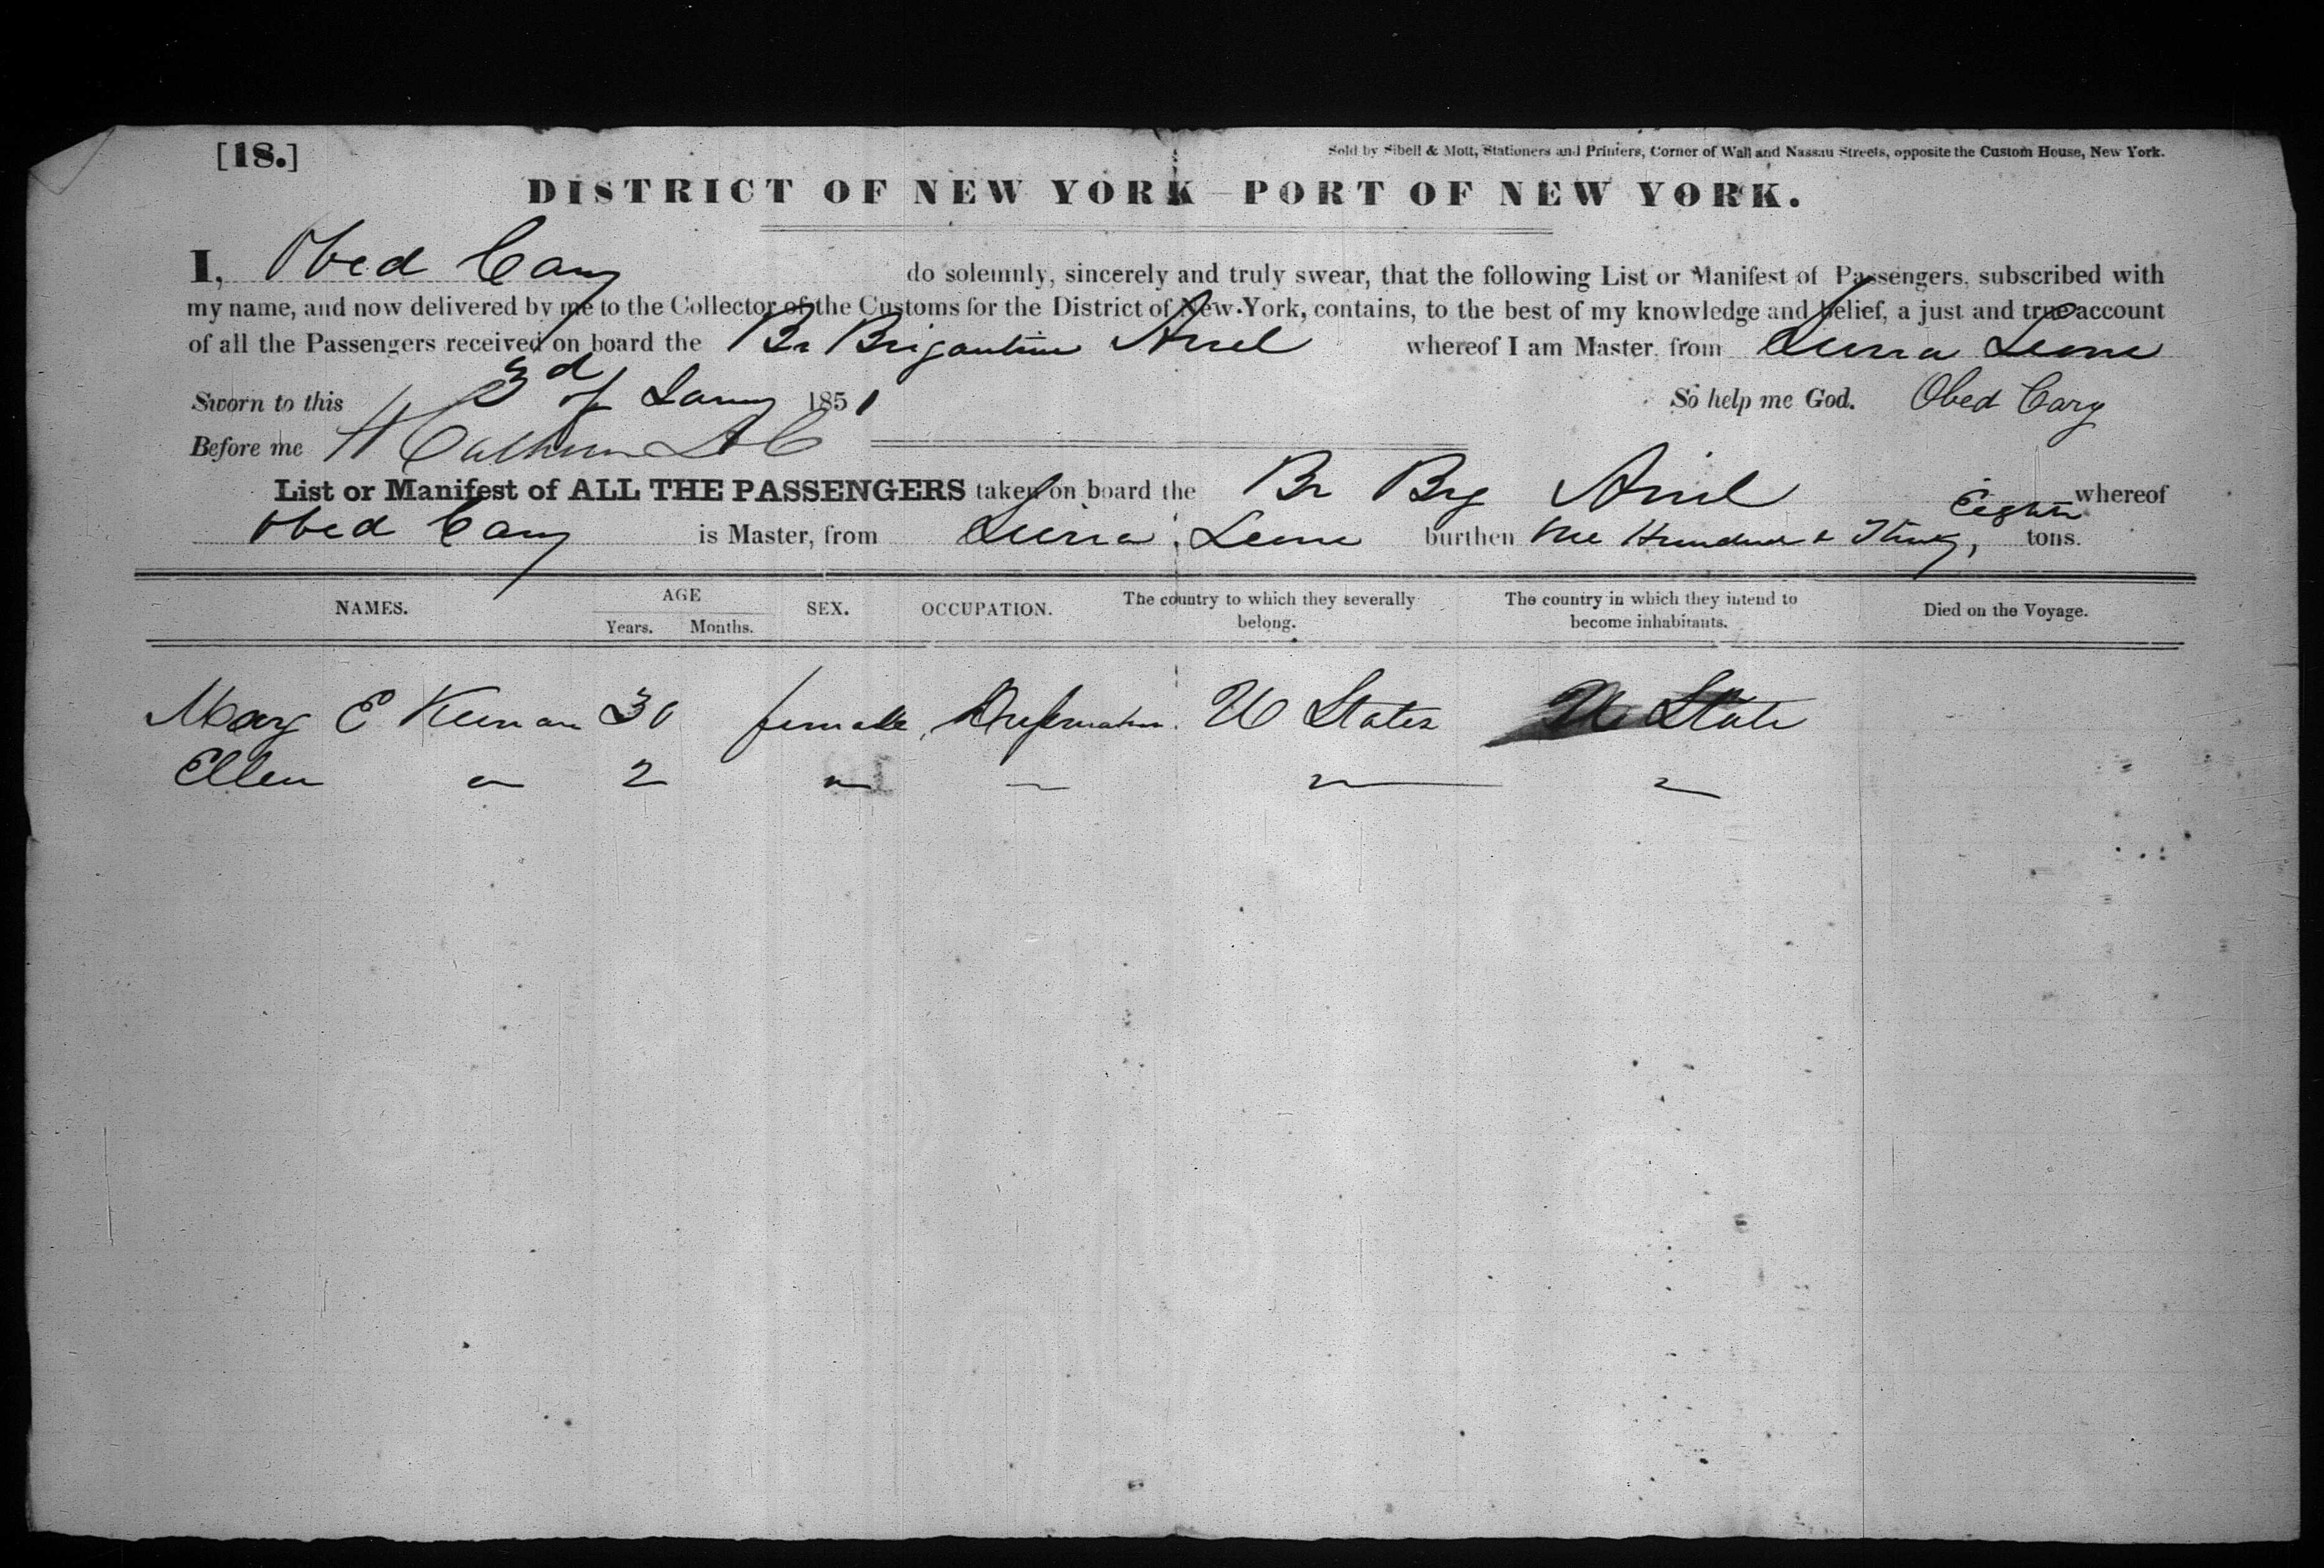 [18.]
Sold by Sibell & Mott, Stationers and Printers, Corner of Wall and Nassau Streets, opposite the Custom House, New York.
DISTRICT OF NEW YORK—PORT OF NEW YORK.
I, Obed Cary do solemnly, sincerely and truly swear, that the following List or Manifest of Passengers, subscribed with
my name, and now delivered by me to the Collector of the Customs for the District of New-York, contains, to the best of my knowledge and belief, a just and true account
of all the Passengers received on board the Br Brigantine Ariel whereof I am Master, from Sierra Leone
Sworn to this 3d of Jany 1851 So help me God. Obed Cary
Before me H Calhoun
List or Manifest of ALL THE PASSENGERS taken on board the Br Brig Ariel whereof
Obed Cary is Master, from Sierra Leone burthen One Hundred & Thirty, Eight tons.
NAMES. AGE Years. Months. SEX. OCCUPATION. The country to which they severally belong. The country in which they intend to become inhabitants. Died on the Voyage.
Mary E Keenan 30 female, U States U State
Ellen " 2 " " " "